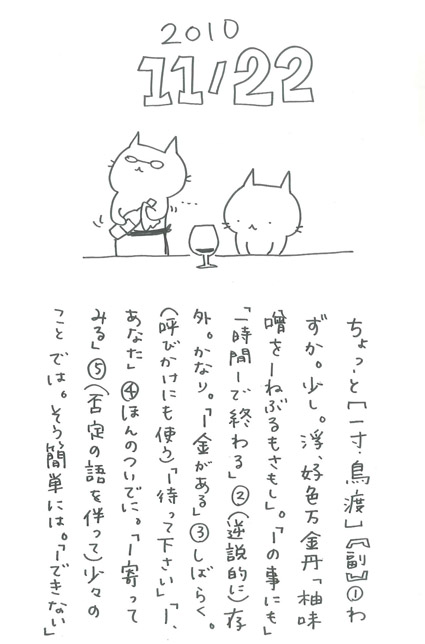 2010
11/22
ちょっ-と［一寸・鳥渡］〘副〙①わ
ずか。少し。浮、好色万金丹「柚味
噌をーねぶるもさもし」。「ーの事にも」
「一時間ーで終わる」②(逆説的に)存
外。かなり。「ー金がある」③しばらく。
(呼びかけにも使う)「ー待って下さい」「ー、
あなた」④ほんのついでに。「ー寄って
みる」⑤(否定の語を伴って)少々の
ことでは。そう簡単には。「ーできない」